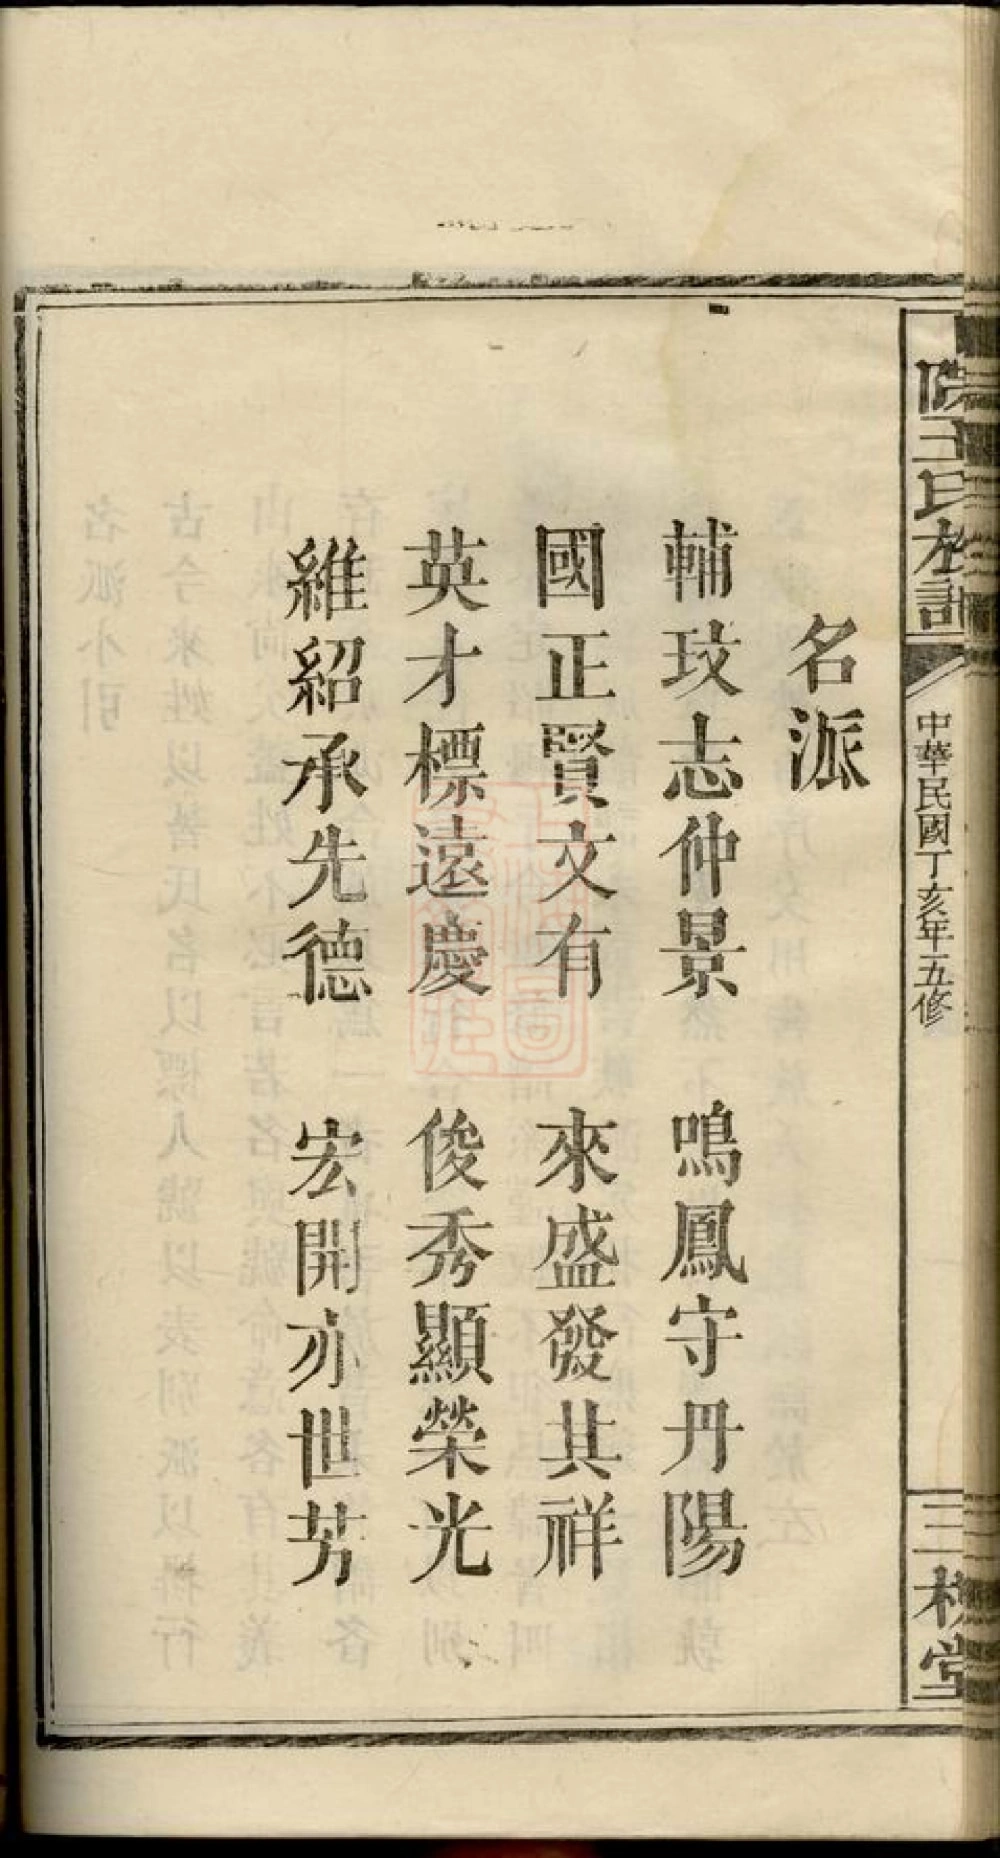 名派
輔玟志仲景　鳴鳳守丹陽
國正賢文有　來盛發其祥
英才標遠慶　俊秀顯榮光
維紹承先德　宏開亦世芳
王氏族譜
中華民國丁亥年五修
三槐堂